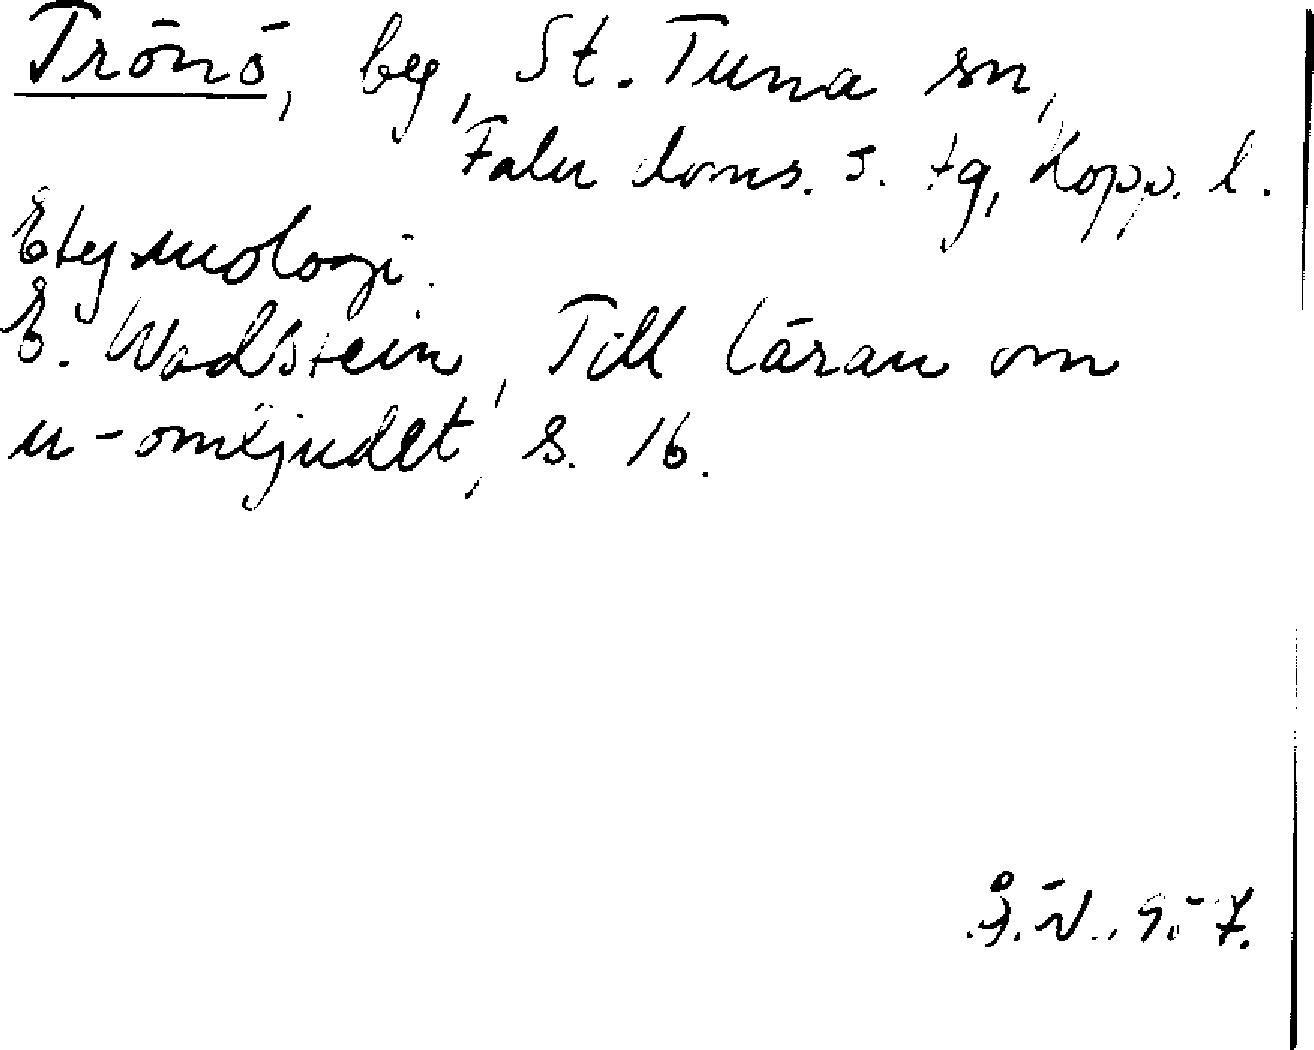 Trönö, beg, St. Tuna sn,
Falu doms. s. tg, Kopp. l.
Etymologi.
E. Wadstein, Till läran om
u-omljudet, s. 16.